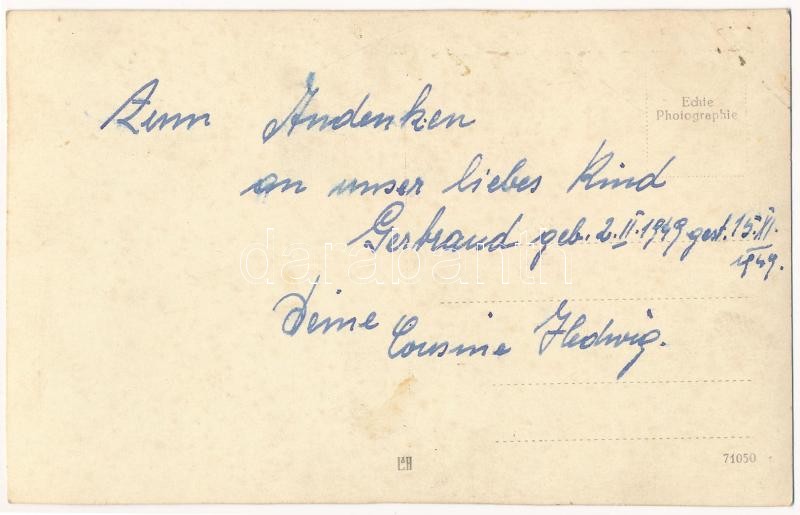 Echte
Photographie
Zum Andenken
an unser liebes Kind
Gerbraud geb. 2.II.1949 gest. 15.XI.
1949.
Deine Cousine Hedwig.
darabanth
71050